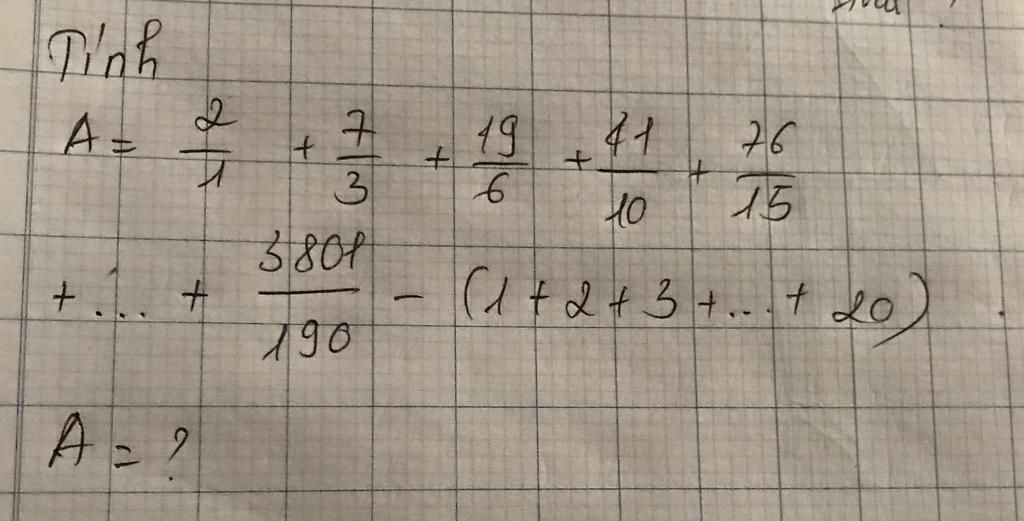 Tính
A = 2/1 + 7/3 + 19/6 + 41/10 + 76/15
+ ... + 3801/190 - (1 + 2 + 3 + ... + 20)
A = ?